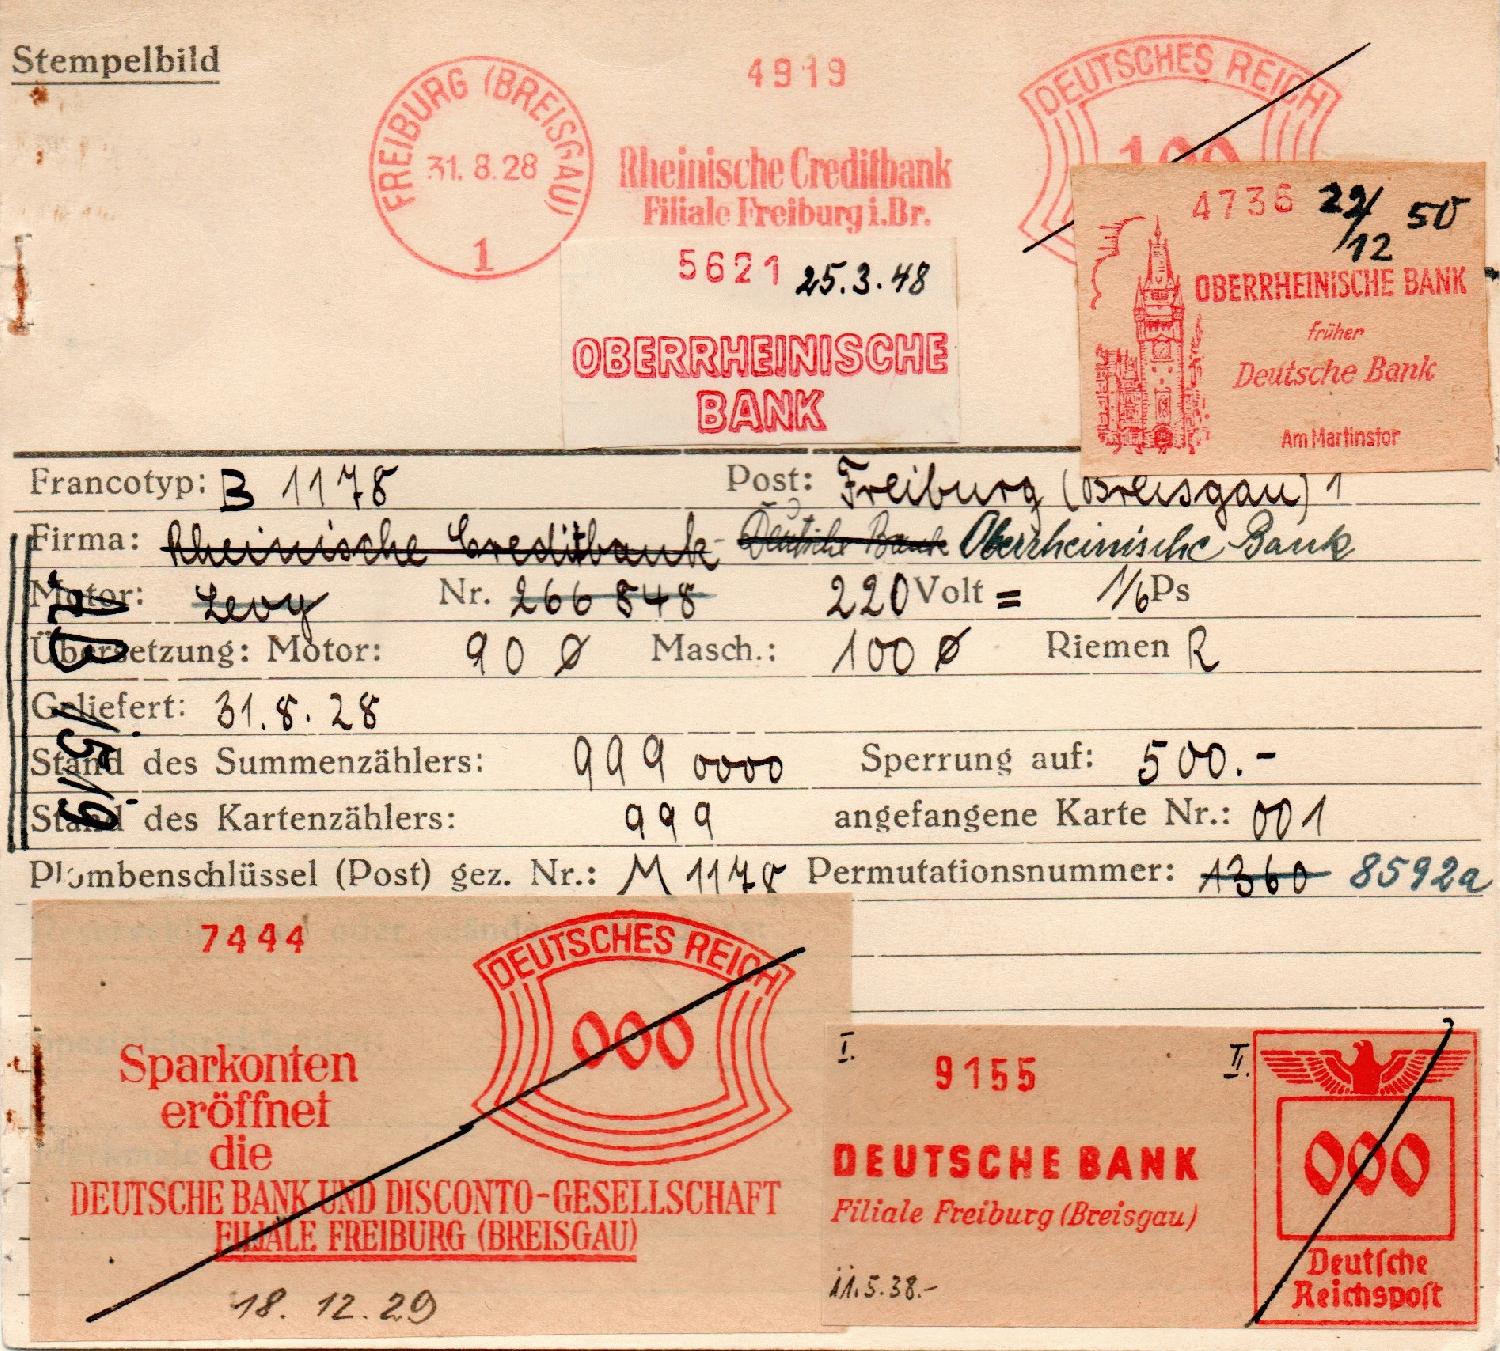 Stempelbild
FREIBURG (BREISGAU)
31.8.28
1
4919
Rheinische Creditbank
Filiale Freiburg i.Br.
DEUTSCHES REICH
100
5621 25.3.48
OBERRHEINISCHE
BANK
4736 22/12 50
OBERRHEINISCHE BANK
früher
Deutsche Bank
Am Martinstor
Francotyp: B 1178 Post: Freiburg (Breisgau) 1
Firma: Rheinische Creditbank Deutsche Bank Oberrheinische Bank
Motor: Levy Nr. 266848 220 Volt = 1/6 Ps
Übersetzung: Motor: 90 Ø Masch.: 100 Ø Riemen R
Geliefert: 31.8.28
Stand des Summenzählers: 999 0000 Sperrung auf: 500.-
Stand des Kartenzählers: 999 angefangene Karte Nr.: 001
Plombenschlüssel (Post) gez. Nr.: M 1178 Permutationsnummer: 1360 8592a
7444
DEUTSCHES REICH
000
Sparkonten
eröffnet
die
DEUTSCHE BANK UND DISCONTO-GESELLSCHAFT
FILIALE FREIBURG (BREISGAU)
18. 12. 29
I. 9155
DEUTSCHE BANK
Filiale Freiburg (Breisgau)
11.5.38.-
II.
000
Deutsche
Reichspost